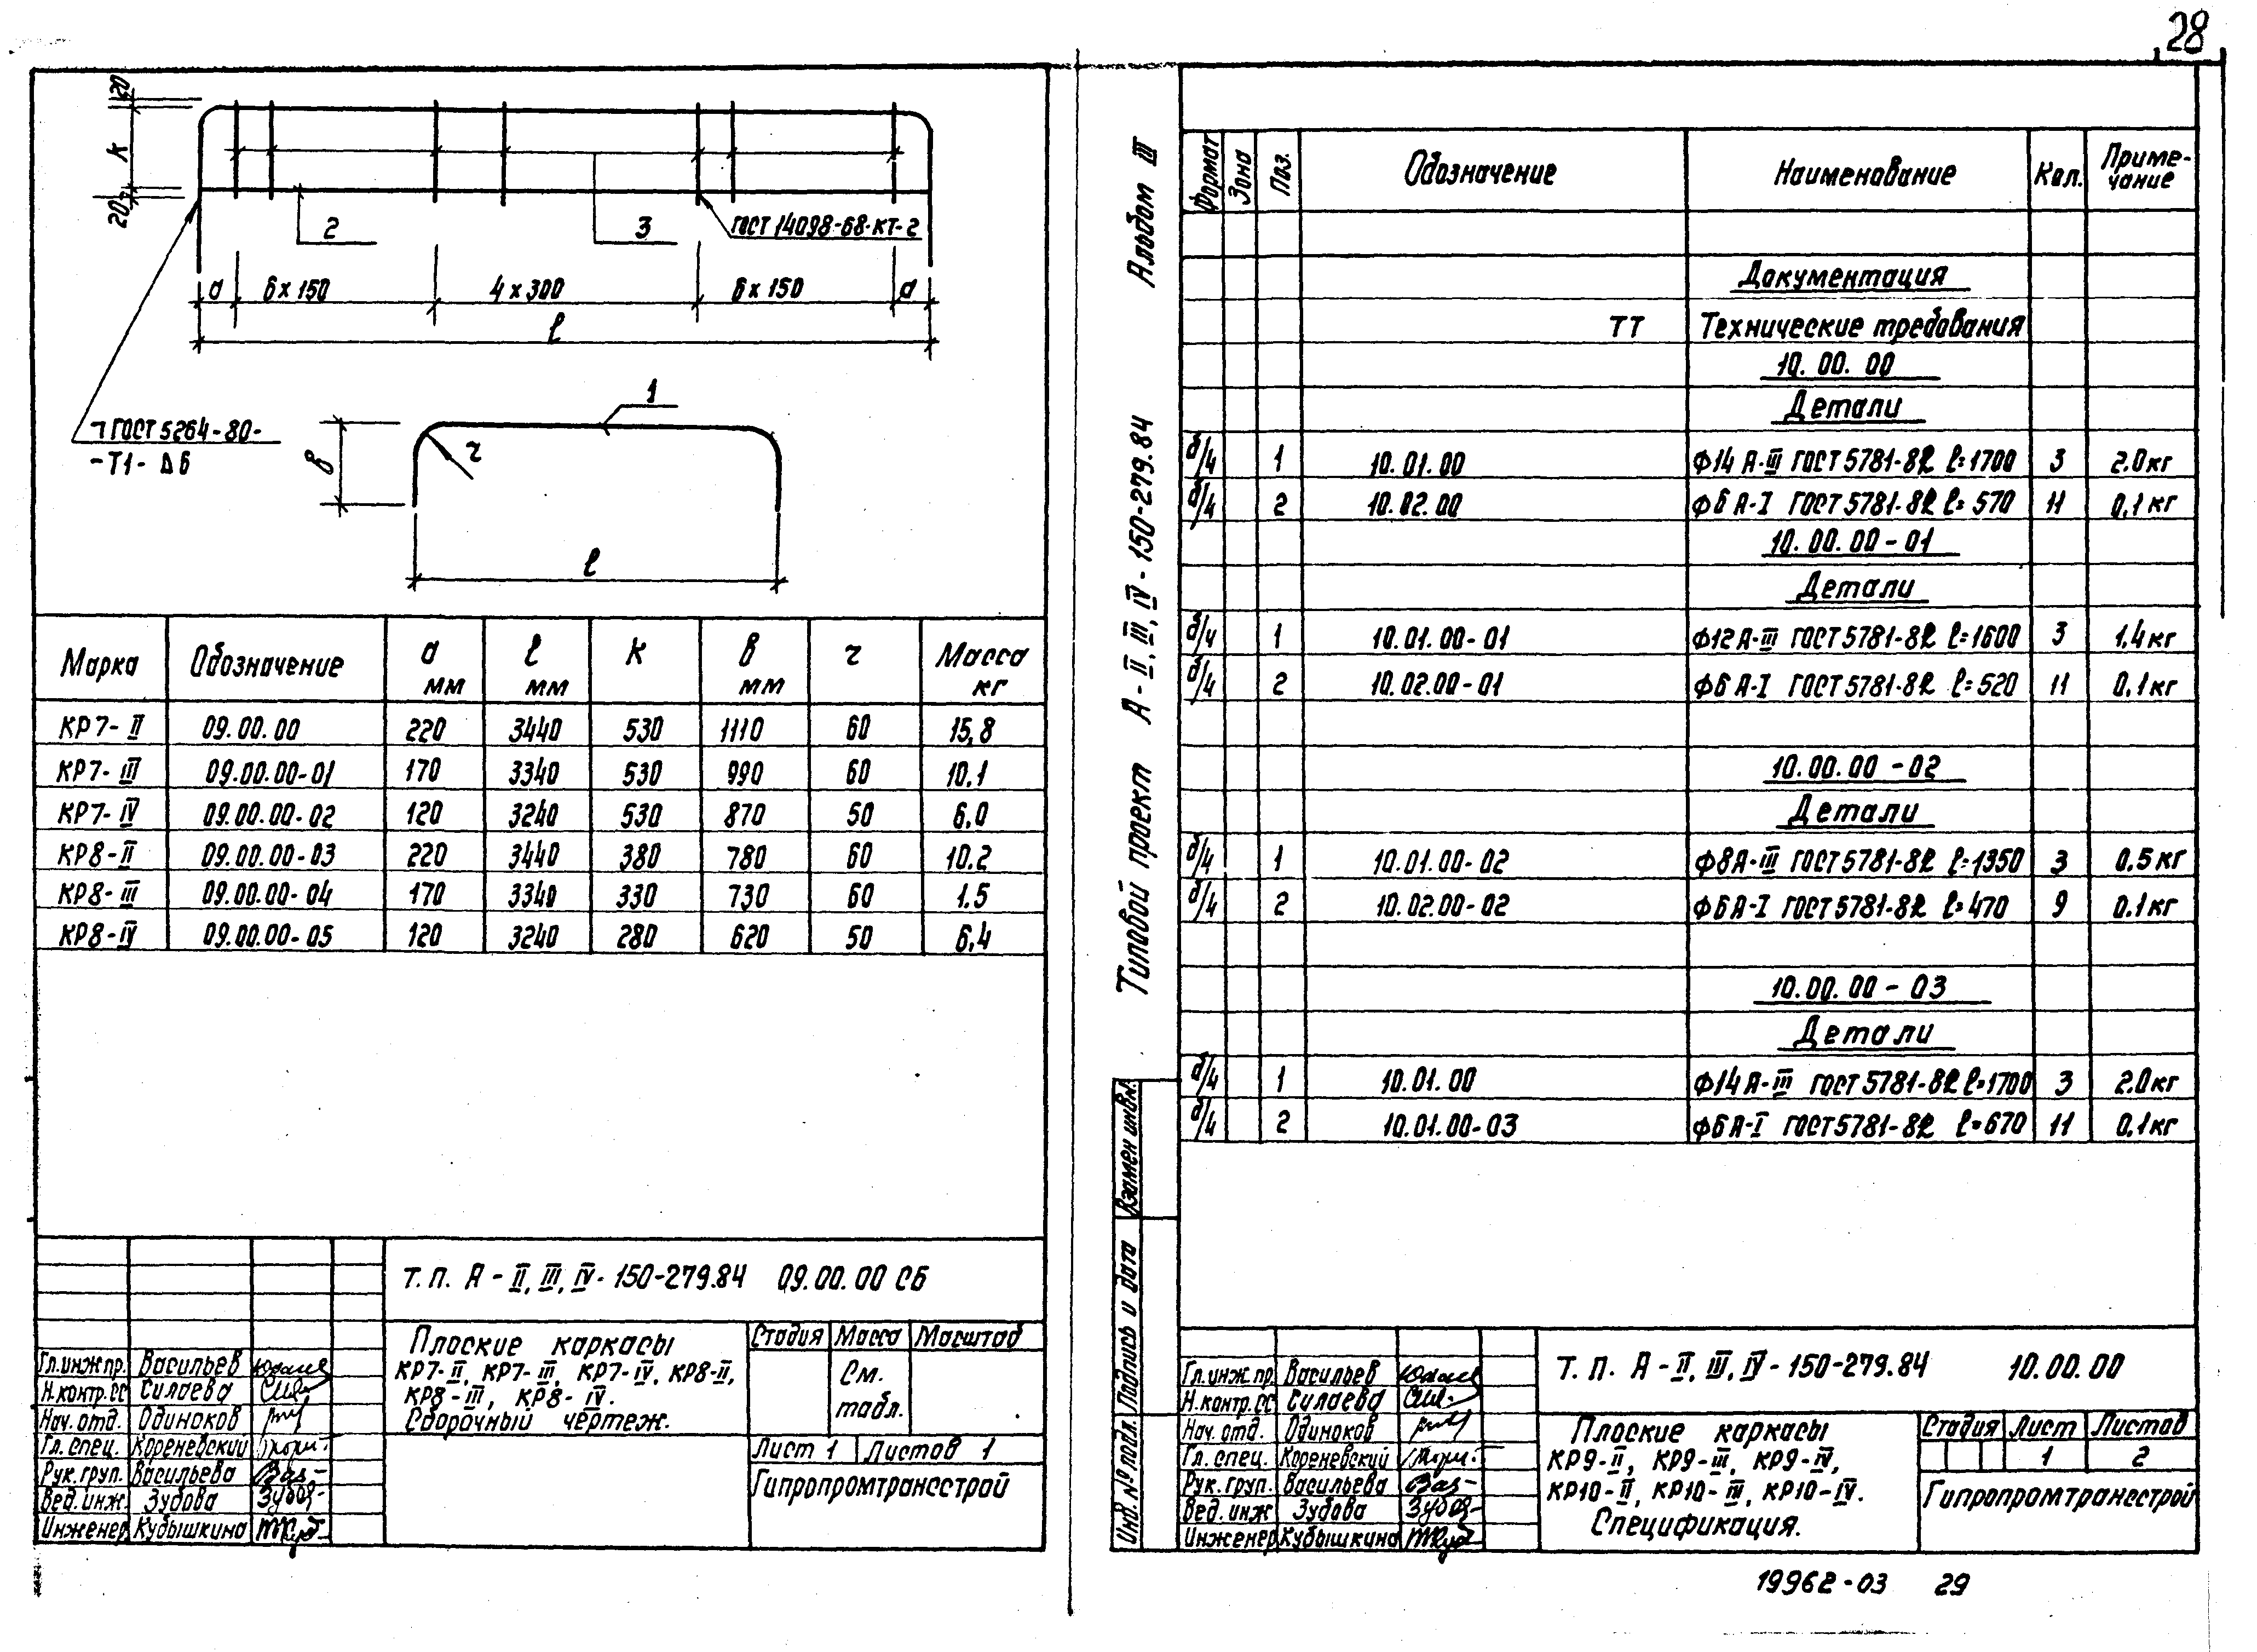 28
20
К
20
2
3
ГОСТ 14098-68-КТ-2
а 6х150 4х300 6х150 а
ℓ
ГОСТ 5264-80-
-Т1-Δ6
1
в
r
ℓ
Марка Обозначение а мм ℓ мм К в мм r Масса кг
КР7-II 09.00.00 220 3440 530 1110 60 15,8
КР7-III 09.00.00-01 170 3340 530 990 60 10.1
КР7-IV 09.00.00-02 120 3240 530 870 50 6.0
КР8-II 09.00.00-03 220 3440 380 780 60 10.2
КР8-III 09.00.00-04 170 3340 330 730 60 1.5
КР8-IV 09.00.00-05 120 3240 280 620 50 6,4
Т.П. А-II, III, IV-150-279.84 09.00.00 СБ
Плоские каркасы
КР7-II, КР7-III, КР7-IV, КР8-II,
КР8-III, КР8-IV.
Сборочный чертеж.
Стадия Масса Масштаб
См.
табл.
Лист 1 Листов 1
Гипропромтрансстрой
Гл.инж пр. Васильев
Н.контр.СС Силаева
Нач.отд. Одиноков
Гл.спец. Кореневский
Рук.груп. Васильева
Вед.инж. Зубова
Инженер Кубышкина
Альбом III
Типовой проект А-II, III, IV-150-279.84
Взамен инв.№
Подпись и дата
Инв.№ подл.
Формат Зона Поз. Обозначение Наименование Кол. Приме-
чание
Документация
ТТ Технические требования
10.00.00
Детали
б/4 1 10.01.00 Ф14 А-III ГОСТ 5781-82 ℓ=1700 3 2.0кг
б/4 2 10.02.00 Ф6 А-I ГОСТ 5781-82 ℓ=570 11 0,1кг
10.00.00-01
Детали
б/4 1 10.01.00-01 Ф12А-III ГОСТ 5781-82 ℓ=1600 3 1,4кг
б/4 2 10.02.00-01 Ф6 А-I ГОСТ 5781-82 ℓ=520 11 0,1кг
10.00.00-02
Детали
б/4 1 10.01.00-02 Ф8А-III ГОСТ 5781-82 ℓ=1350 3 0.5кг
б/4 2 10.02.00-02 Ф6А-I ГОСТ 5781-82 ℓ=470 9 0.1кг
10.00.00-03
Детали
б/4 1 10.01.00 Ф14 А-III ГОСТ 5781-82 ℓ=1700 3 2.0кг
б/4 2 10.01.00-03 Ф6А-I ГОСТ 5781-82 ℓ=670 11 0,1кг
Т.П. А-II, III, IV-150-279.84 10.00.00
Плоские каркасы
КР9-II, КР9-III, КР9-IV,
КР10-II, КР10-III, КР10-IV.
Спецификация.
Стадия Лист Листов
1 2
Гипропромтрансстрой
Гл.инж.пр. Васильев
Н.контр.СС Силаева
Нач.отд. Одиноков
Гл.спец. Кореневский
Рук.груп. Васильева
Вед.инж Зубова
Инженер Кубышкина
19962-03 29